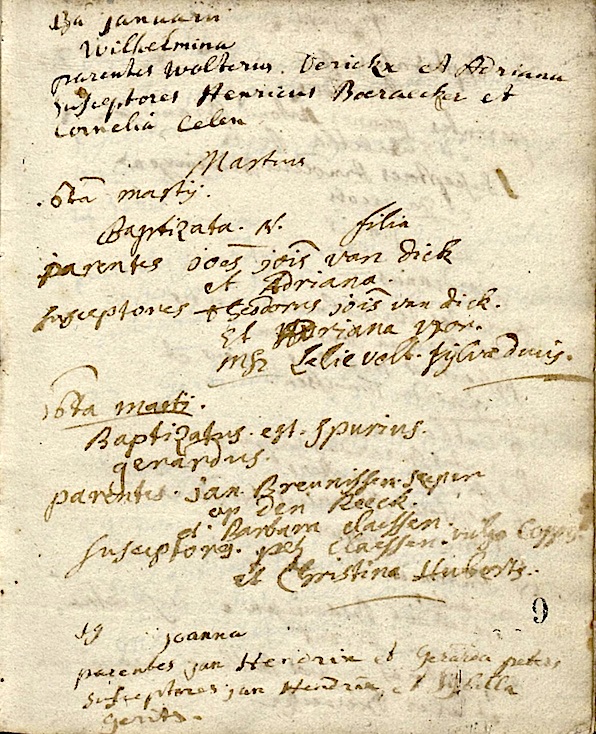 januarii
Wilhelmina
parentes Wolterus Derickx et Adriana
susceptores Henricus Boeraecker et
Cornelia Celen
Martius
6ta martij.
Baptizata. N. filia
parentes joes jois van dick
et Adriana
susceptores Theodorus jois van dick.
Et Adriana uxor.
Lelievelt. sylvæducis.
16ta marti.
Baptizatus est spurius.
gerardus.
parentes jan Breunissen
op den
et Barbara claessen.
susceptores. petr Claessen. vulgo
et Christina Huberts.
9
19 joanna
parentes jan Hendrix et Gerarda peters
susceptores jan Hendrix et Sybilla
gerits.